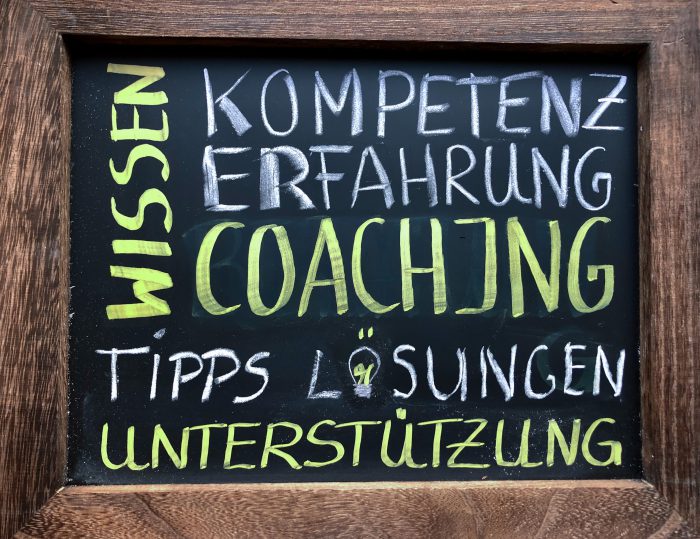 WISSEN
KOMPETENZ
ERFAHRUNG
COACHING
TIPPS LÖSUNGEN
UNTERSTÜTZUNG